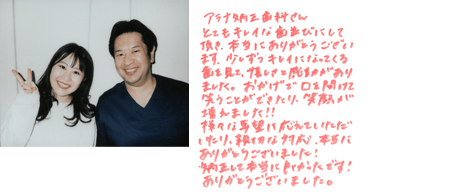 アラタ矯正歯科さん
とてもキレイな歯並びにして
頂き、本当にありがとうござい
ます。少しずつキレイになってくる
歯を見て、嬉しさと感動があり
ました。おかげで口を開けて
笑うことができたり、笑顔が
増えました!!
様々な要望に応えていただ
いたり、親切な対応、本当に
ありがとうございました!
矯正して本当に良かったです!
ありがとうございました。